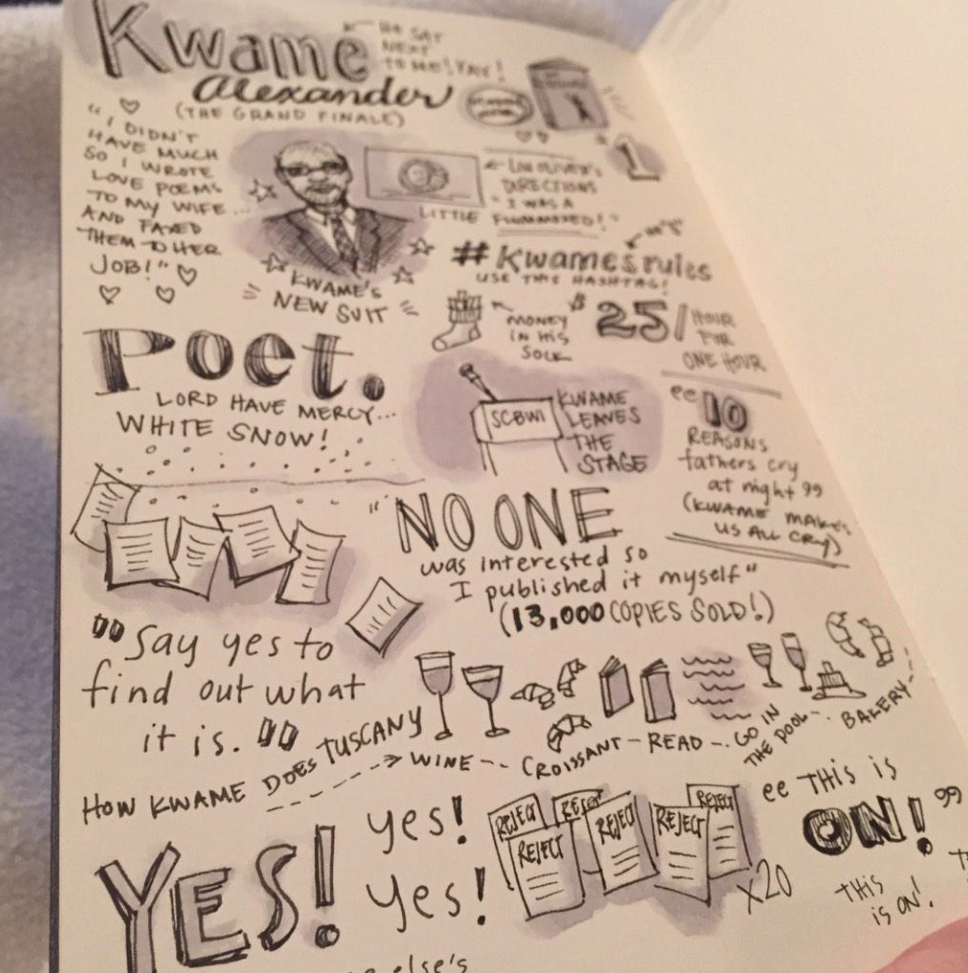 Kwame
Alexander
(THE GRAND FINALE)
HE SAT
NEXT
TO ME! YAY!
1
"I DIDN'T
HAVE MUCH
SO I WROTE
LOVE POEMS
TO MY WIFE...
AND FAXED
THEM TO HER
JOB!"
KWAME'S
NEW SUIT
DIRECTIONS
"I WAS A
LITTLE FLUMMOXED!"
#kwamesrules
USE THIS HASHTAG!
MONEY
IN HIS
SOCK
$25/HOUR
FOR
ONE HOUR
Poet.
LORD HAVE MERCY...
WHITE SNOW!
SCBWI
KWAME
LEAVES
THE
STAGE
"10
REASONS
fathers cry
at night"
(KWAME MAKES
US ALL CRY)
"NO ONE
was interested so
I published it myself"
(13,000 COPIES SOLD!)
"Say yes to
find out what
it is."
HOW KWAME DOES TUSCANY
WINE -- CROISSANT - READ -- GO IN
THE POOL -- BAKERY --
YES!
yes!
yes!
REJECT
REJECT
REJECT
REJECT
REJECT
REJECT
X20
"THIS is
ON!"
THIS
is ON!
else's